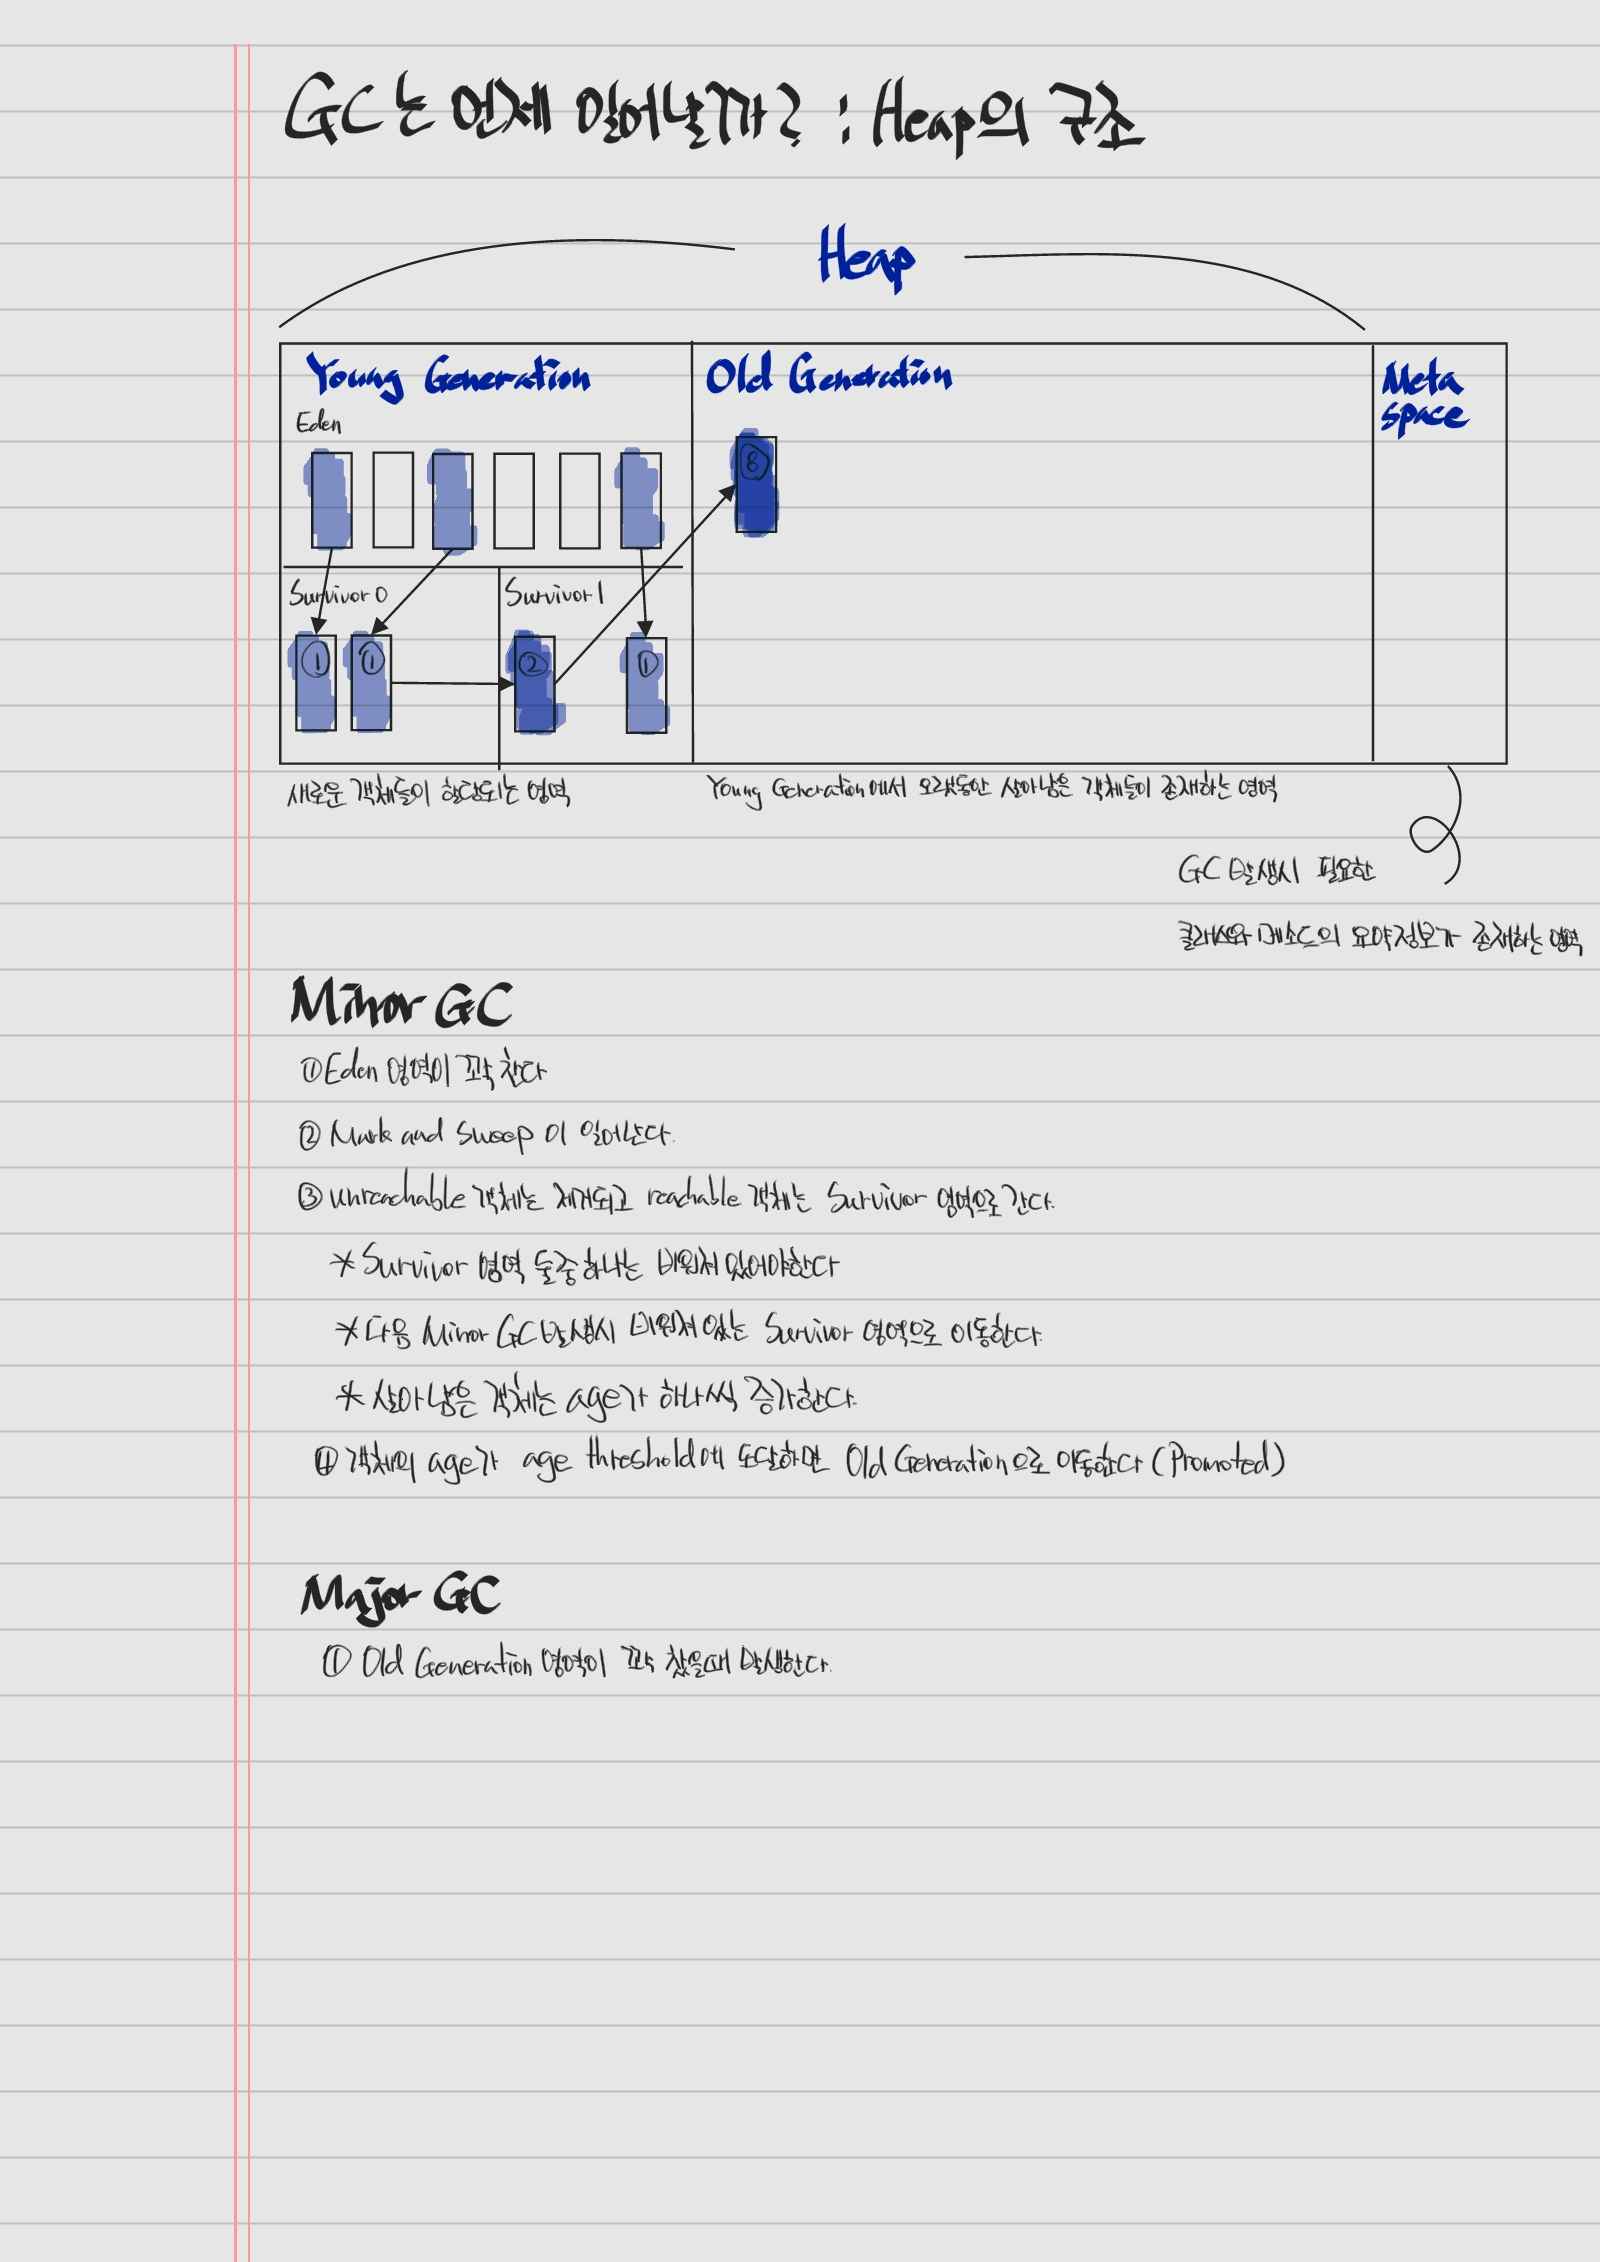 GC는 언제 일어날까? : Heap의 구조
Heap
Young Generation
Old Generation
Meta
space
Eden
8
Survivor 0
Survivor 1
① ① ② ①
새로운 객체들이 할당되는 영역
Young Generation에서 오랫동안 살아남은 객체들이 존재하는 영역
GC 발생시 필요한
클래스와 메소드의 요약정보가 존재하는 영역
Minor GC
① Eden 영역이 꽉 찬다
② Mark and Sweep이 일어난다.
③ unreachable 객체는 제거되고 reachable 객체는 Survivor 영역으로 간다.
* Survivor 영역 둘중 하나는 비워져 있어야한다
* 다음 Minor GC 발생시 비워져 있는 Survivor 영역으로 이동한다.
* 살아남은 객체는 age가 하나씩 증가한다.
④ 객체의 age가 age threshold에 도달하면 Old Generation으로 이동한다 (Promoted)
Major GC
① Old Generation 영역이 꽉 찼을때 발생한다.